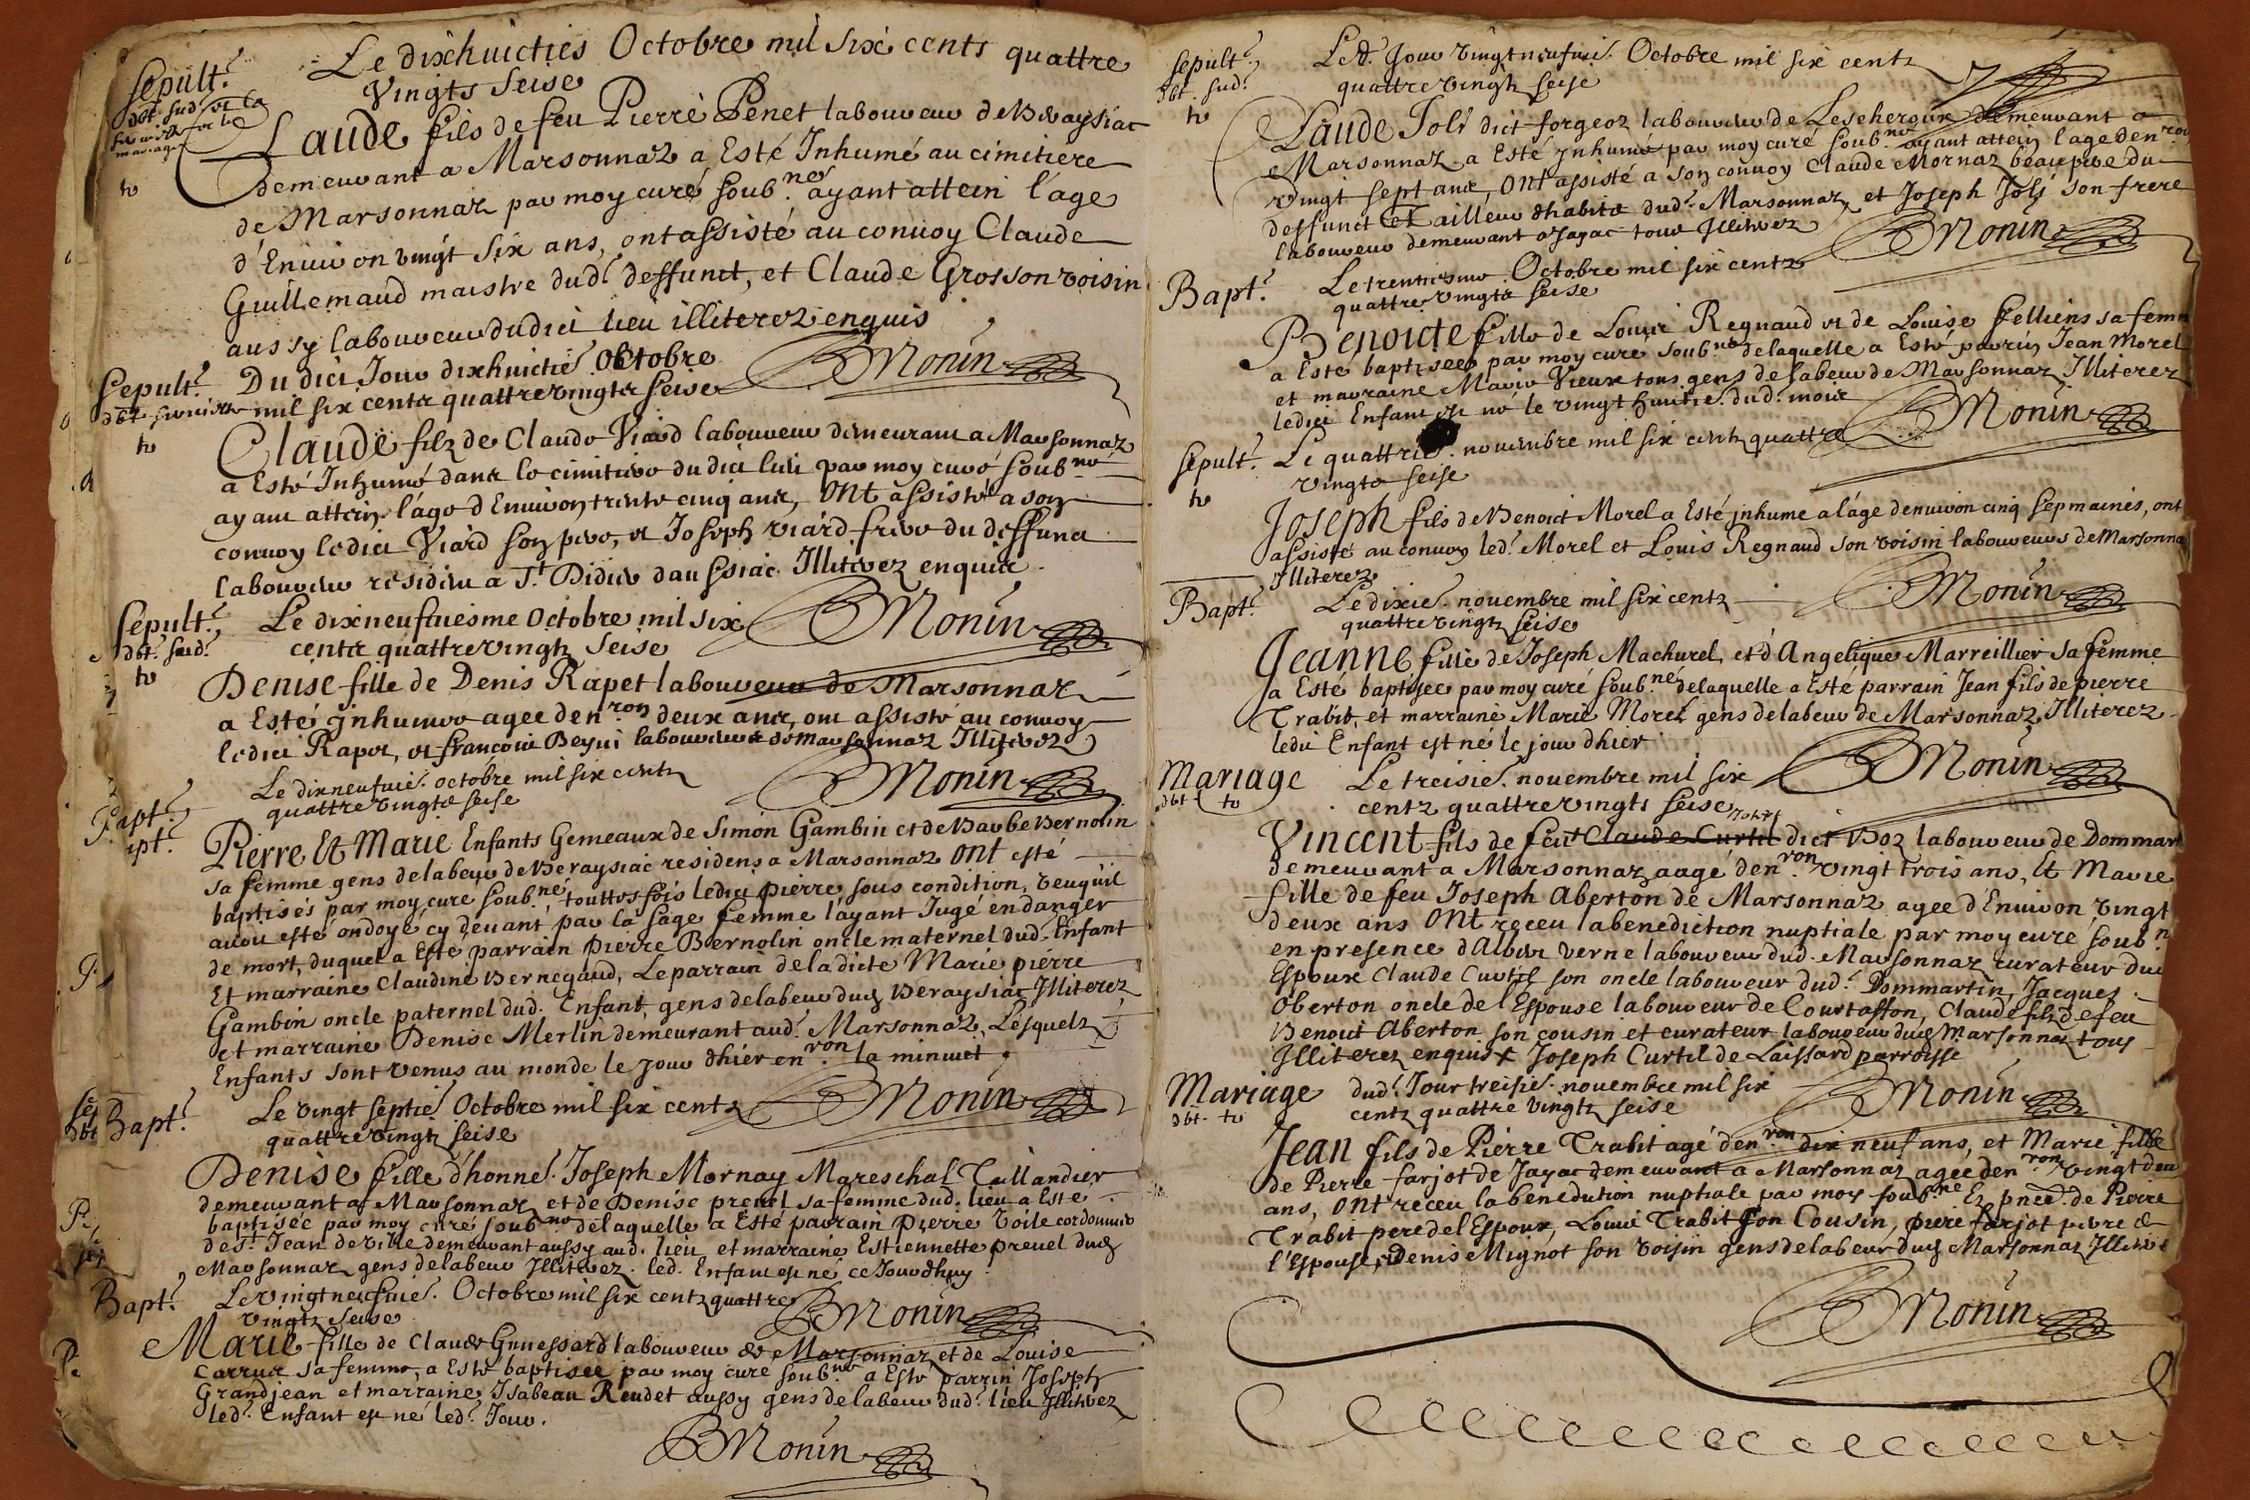 Sepult.e
Le dixhuicties Octobre mil six cents quattre
Vingts Seise
Claude fils de feu Pierre Penet laboureur de Beraysiac
demeurant a Marsonnaz a Esté Inhumé au cimitiere
de Marsonnaz par moy curé soub.né ayant attein l'age
d'Environ vingt six ans, ont assisté au convoy Claude
Guillemaud maistre dud.t deffunct, et Claude Grosson voisin
aussy laboureur dudict lieu illiterez enquis
BMonin
Sepult.e
Du dict Jour dixhuictie. Octobre
mil six cents quattrevingts seise
to
Claude filz de Claude Viard laboureur demeurant a Marsonnaz
a Esté Inhumé dans le cimitiere du dict lieu par moy curé soub.né
ayant attein l'age d'Environ trente cinq ans, ont assisté a son
convoy ledict Viard son pere, et Joseph viard frere du deffunct
laboureur residens a S.t Didier daussiac Illiterez enquis
BMonin
Sepult.e
dbt. sud.t
to
Le dixneufuiesme Octobre mil six
cents quattrevingtz Seise
Denise fille de Denis Rapet laboureur de Marsonnaz
a Esté jnhumee agee den.ron deux ans, ont assisté au convoy
ledict Rapet, et françois Beyni laboureurs de Marsonnaz Illiterez
BMonin
Bapt.e
Le dixneufuie. octobre mil six centz
quattrevingts seise
Pierre Et Marie Enfants Gemeaux de Simon Gambin et de Barbe Bernolin
sa femme gens delabeur de Beraysiac residens a Marsonnaz ont esté
baptisés par moy curé soub.né, touttesfois ledict pierre sous condition, veuquil
auoit esté ondoyé cy deuant par la sage femme l'ayant Jugé en danger
de mort, duquel a Esté parrain pierre Bernolin oncle maternel dud. Enfant
Et marraine Claudine Bernegaud, Le parrain de la dicte Marie pierre
Gambin oncle paternel dud. Enfant, gens delabeur dud. Beraysiac Illiterez
et marraine Denise Merlin demeurant aud.t Marsonnaz, Lesquelz
Enfants sont venus au monde le jour dhier en.ron la minuict
BMonin
Bapt.e
Le vingt septie. Octobre mil six centz
quattrevingtz seise
Denise fille d'honne. Joseph Mornay Mareschal Taillandier
demeurant a Marsonnaz et de Denise prevel sa femme dud. lieu a Esté
baptisée par moy curé soub.né delaquelle a Esté parrain pierre Voile cordonnier
de S.t Jean de ville demeurant aussy aud. lieu et marraine Estiennette prevel dud.
Marsonnaz gens delabeur Illiterez. led. Enfant est né ce Jourdhuy
BMonin
Bapt.e
Le vingtneufuie. Octobre mil six centz quattre
vingtz seise
Marie fille de Claude Gauessard laboureur de Marsonnaz et de Louise
Carrur sa femme, a Esté baptisee par moy curé soub.né a Esté parrin Joseph
Grandjean et marraine Isabeau Reudet aussy gens delabeur dud.t lieu Illiterez
led.t Enfant est né led.t Jour.
BMonin
Sepult.e
dbt. sud.t
to
Led.t Jour vingtneufuie. Octobre mil six centz
quattrevingtz seise
Claude Joli dict forgeoz laboureur de Lescheroux demeurant a
Marsonnaz a Esté jnhumé par moy curé soub.né ayant attein l'age den.ron
vingt sept ans, ont assisté a son convoy Claude Mornaz beaupere du
deffunct Et ailleur dhabits dud.t Marsonnaz, et Joseph Joli son frere
laboureur demeurant a Jayac tous Illiterez
BMonin
Bapt.e
Le trentiesme Octobre mil six centz
quattrevingts seise
Benoicte fille de Louis Regnaud et de Louise felliens sa femme
a Esté baptisee par moy curé soub.né delaquelle a Esté parrin Jean Morel
et marraine Marie Vieux tous gens delabeur de Marsonnaz Illiterez
ledict Enfant est né le vingt huitie. dud.t mois
BMonin
Sepult.e
to
Le quattrie. novembre mil six centz quattre
vingts seise
Joseph fils de Benoict Morel a Esté jnhumé a l'age denuiron cinq sepmaines, ont
assisté au convoy led.t Morel et Louis Regnaud son voisin laboureurs de Marsonnaz
Illiterez
BMonin
Bapt.e
Le dixie. novembre mil six centz
quattrevingtz seise
Jeanne fille de Joseph Machurel, et d'Angelique Marreillier sa femme
a Esté baptisee par moy curé soub.né delaquelle a Esté parrain Jean fils de pierre
Trabit, et marraine Marie Morel gens delabeur de Marsonnaz Illiterez
ledict Enfant est né le jour dhier
BMonin
Mariage
dbt. to
Le treisie. novembre mil six
centz quattrevingts seise
Vincent fils de feu Claude Curtil dict Boz laboureur de Dommartin
demeurant a Marsonnaz aagé den.ron vingt trois ans, Et Marie
fille de feu Joseph Aberton de Marsonnaz agee d'Enuiron vingt
deux ans ont receu la benediction nuptiale par moy curé soub.né
en presence d'Albin verne laboureur dud. Marsonnaz curateur dud.
Espoux Claude Curtil son oncle laboureur dud.t Dommartin, Jacques
Oberton oncle de l'Espouse laboureur de Courtaffon, Claude filz de feu
Benoit Aberton son cousin et curateur laboureur dud. Marsonnaz tous
Illiterez enquis x Joseph Curtil de Laissard parroisse
BMonin
Mariage
dbt. to
dud.t Jour treisie. novembre mil six
centz quattre vingtz seise
Jean fils de Pierre Trabit agé den.ron dix neuf ans, et Marie fille
de Pierre farjot de Jayac demeurant a Marsonnaz agee den.ron vingt deux
ans, ont receu la benediction nuptiale par moy soub.né Ez pnce. de Pierre
Trabit pere de l'Espoux, Louis Trabit son Cousin, pierre farjot pere de
l'Espouse, Denis Mignot son voisin gens delabeur dud. Marsonnaz Illiterez
BMonin